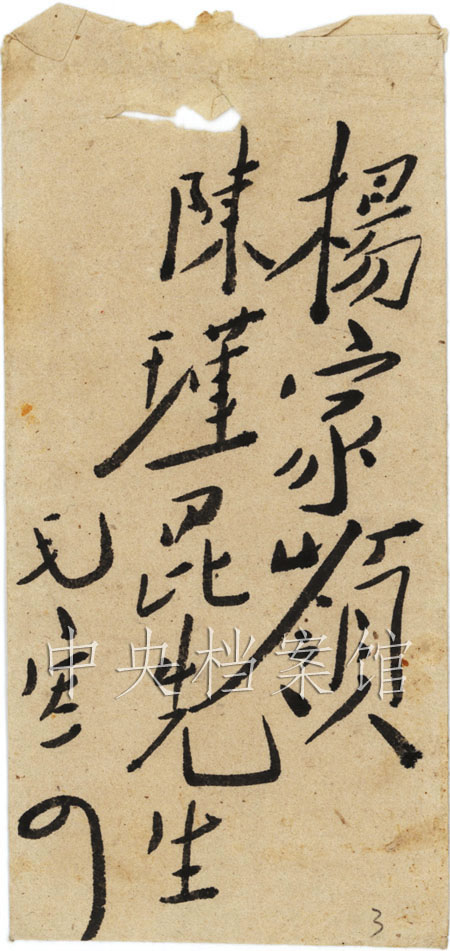 楊家嶺
陳瑾昆先生
毛
中央档案馆
3